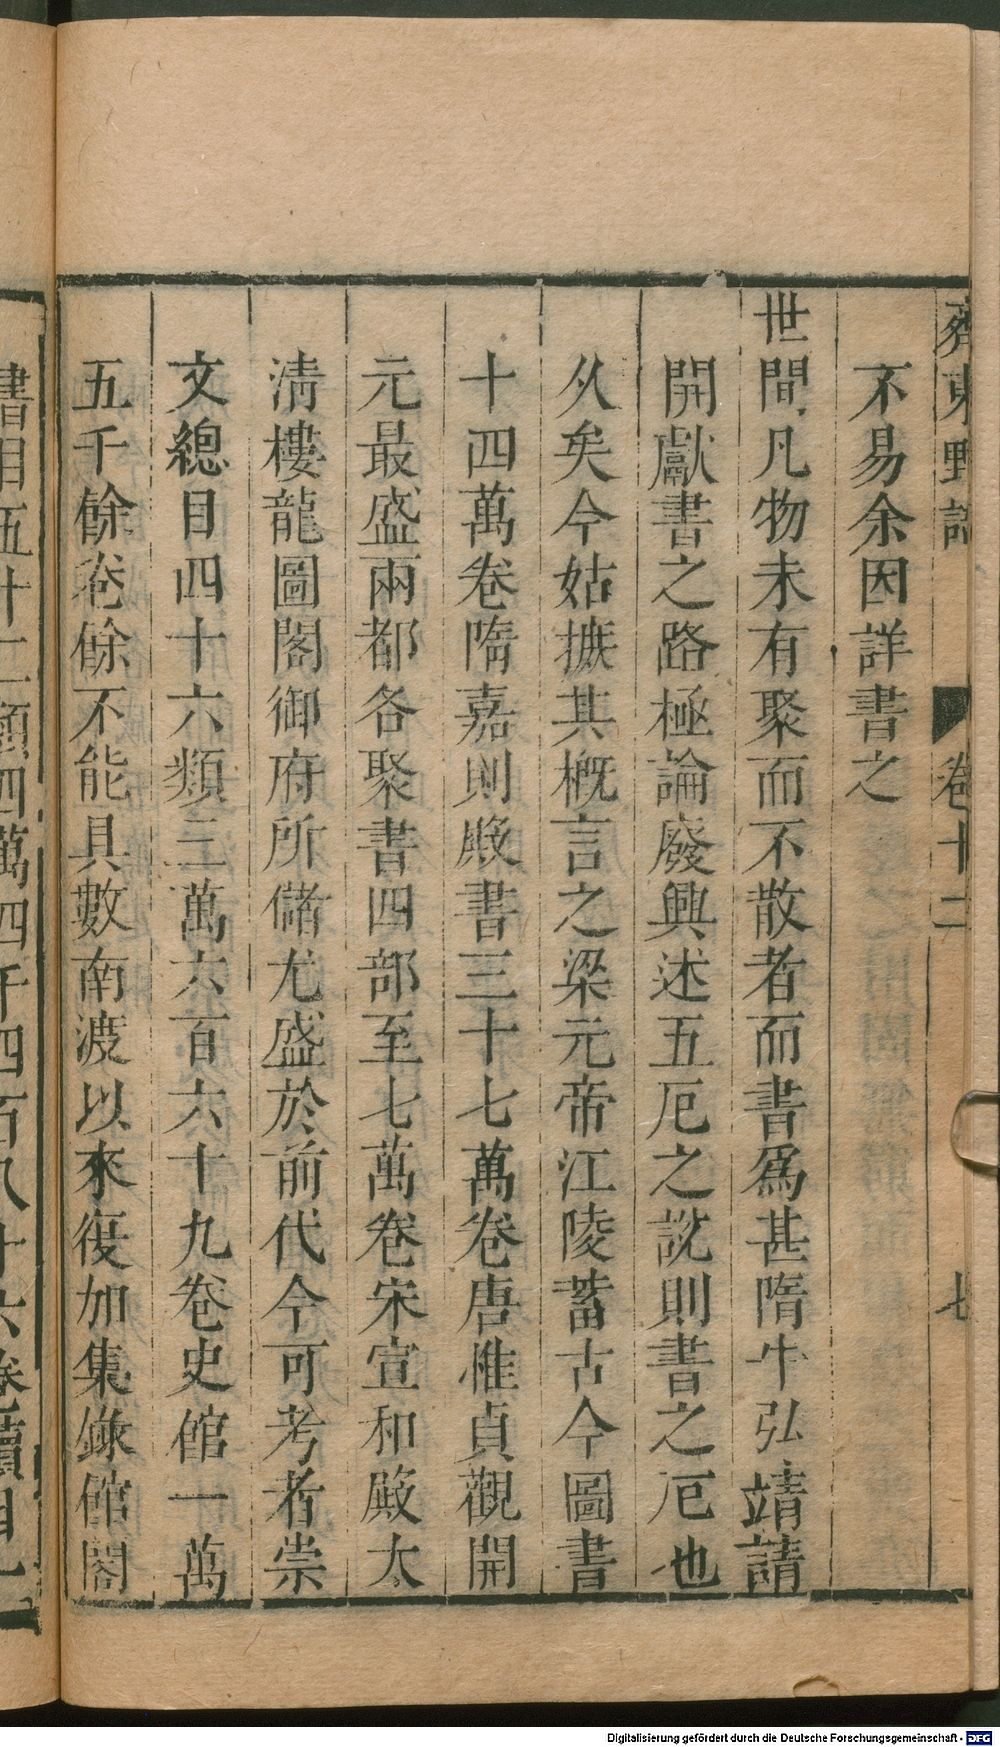 齊東野語 卷十二 七
不易余因詳書之
世間凡物未有聚而不散者而書爲甚隋牛弘靖請
開獻書之路極論廢興述五厄之說則書之厄也
久矣今姑摭其概言之梁元帝江陵蓄古今圖書
十四萬卷隋嘉則殿書三十七萬卷唐惟貞觀開
元最盛兩都各聚書四部至七萬卷宋宣和殿太
清樓龍圖閣御府所儲尤盛於前代今可考者崇
文總目四十六類三萬六百六十九卷史館一萬
五千餘卷餘不能具數南渡以來復加集錄館閣
書目五十二類四萬四千四百八十六卷續目一
Digitalisierung gefördert durch die Deutsche Forschungsgemeinschaft - DFG